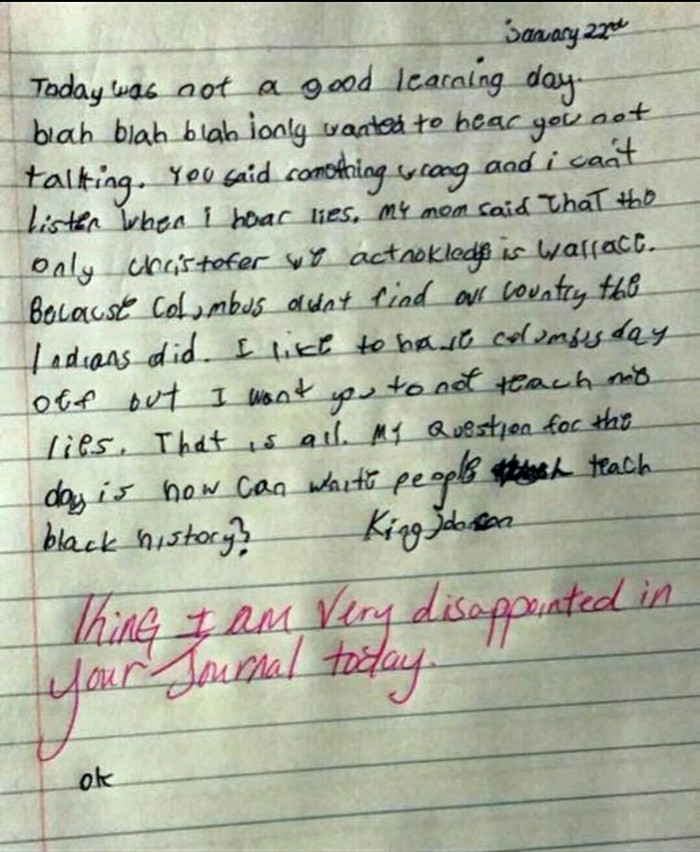 January 22nd
Today was not a good learning day.
blah blah blah i only wanted to hear you not
talking. You said something wrong and i can't
listen when i hear lies. My mom said That the
only christofer we acknokledge is Wallace.
Because Columbus didnt find our country the
Indians did. I like to have columbus day
off but I want you to not teach me
lies. That is all. My Question for the
day is how can white people teach
black history?        King Johnson
King I am very disappointed in
your Journal today.
ok